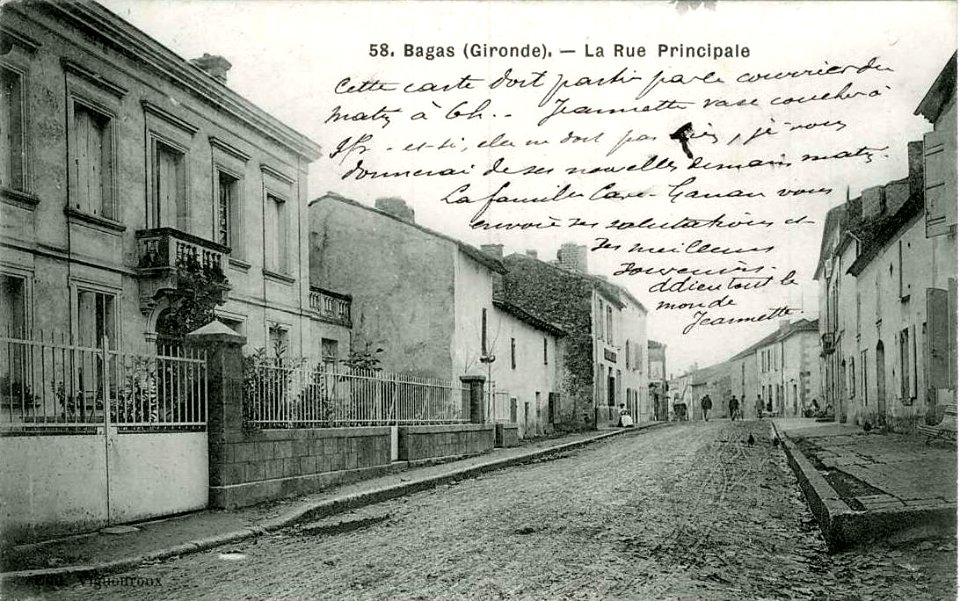 58. Bagas (Gironde). — La Rue Principale
Cette carte doit partir par le courrier du
matin à 6h.. Jeannette va se coucher à
et si, elle ne dort pas , je vous
donnerai de ses nouvelles demain matin.
La famille vous
envoie ses salutations et
ses meilleurs
souvenirs
addieu tout le
monde
Jeannette
Vigouroux